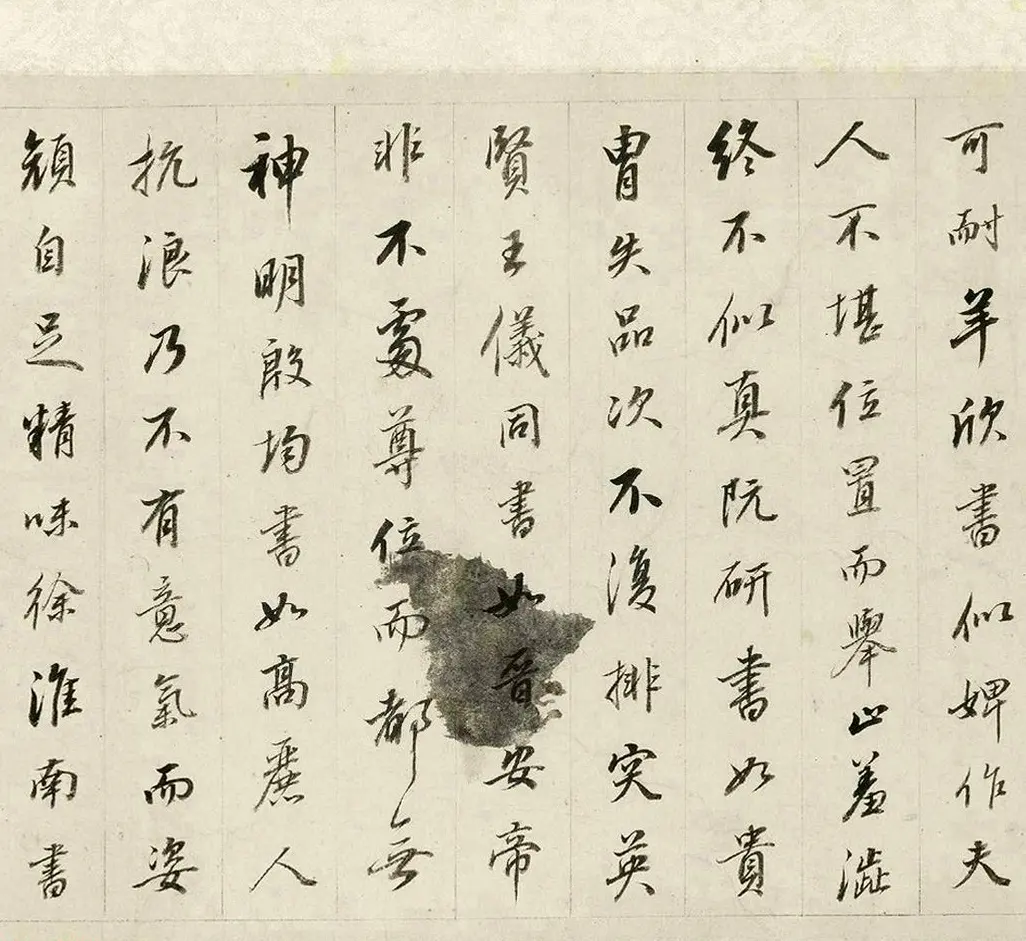 可耐羊欣書似婢作夫
人不堪位置而舉止羞澁
終不似真阮研書如貴
胄失品次不復排突英
賢王儀同書如晉安帝
非不處尊位而都無
神明殷均書如高麗人
抗浪乃不有意氣而姿
顏自足精味徐淮南書